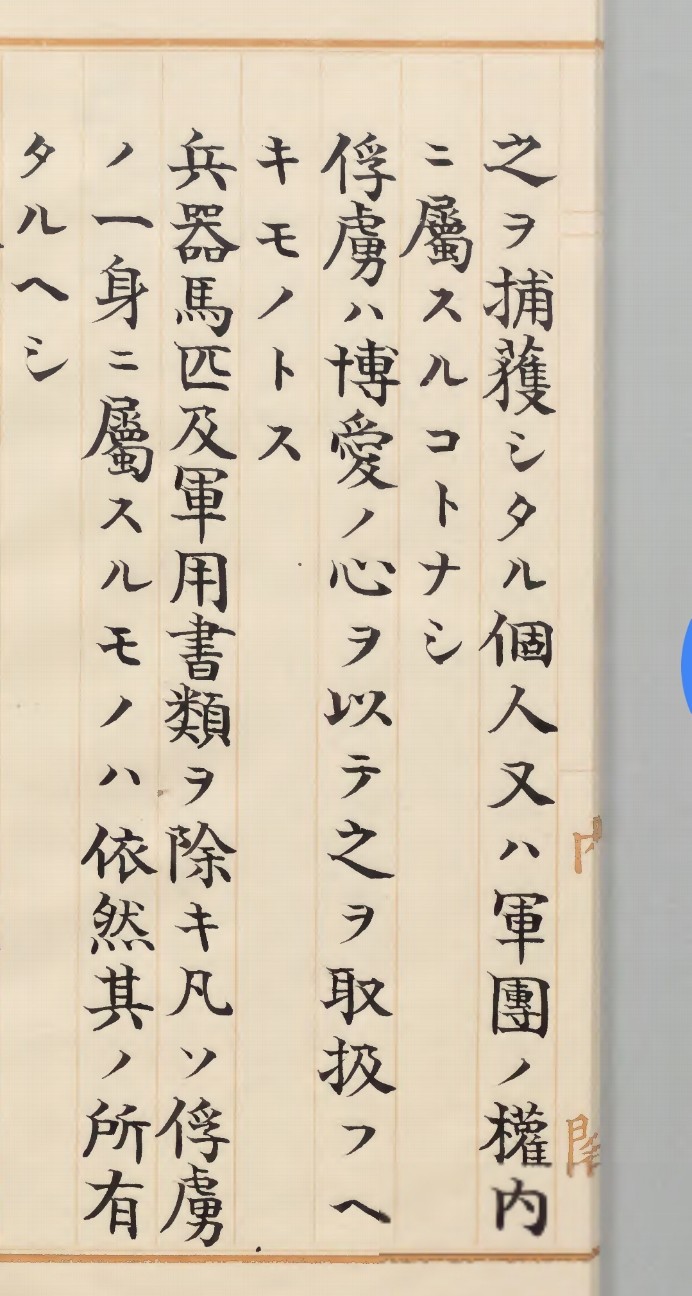 之ヲ捕獲シタル個人又ハ軍團ノ權内
ニ屬スルコトナシ
俘虜ハ博愛ノ心ヲ以テ之ヲ取扱フヘ
キモノトス
兵器馬匹及軍用書類ヲ除キ凡ソ俘虜
ノ一身ニ屬スルモノハ依然其ノ所有
タルヘシ
内
閣